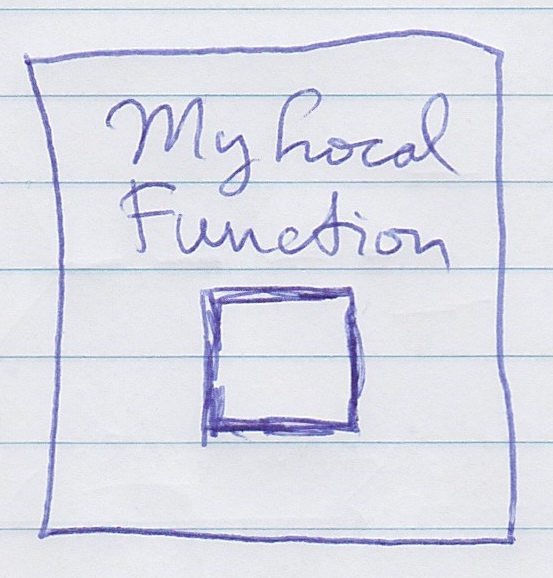 My Local
Function